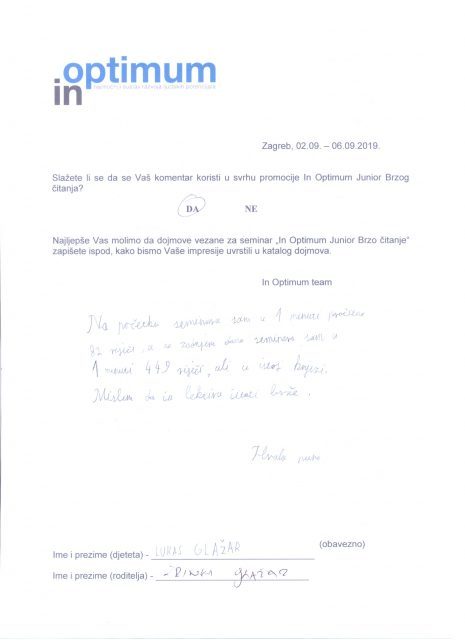 in optimum
Zagreb, 02.09. – 06.09.2019.
Slažete li se da se Vaš komentar koristi u svrhu promocije In Optimum Junior Brzog
čitanja?
DA NE
Najljepše Vas molimo da dojmove vezane za seminar „In Optimum Junior Brzo čitanje“
zapišete ispod, kako bismo Vaše impresije uvrstili u katalog dojmova.
In Optimum team
Na početku seminara sam u 1 minuti pročitao
82 riječi, a na zadnjem danu seminara sam u
1 minuti 449 riječi, ali u istoj knjizi.
Mislim da ću lektiru čitati brže.
Hvala puno
(obavezno)
Ime i prezime (djeteta) - LUKAS GLAŽAR
Ime i prezime (roditelja) - GLAŽAR